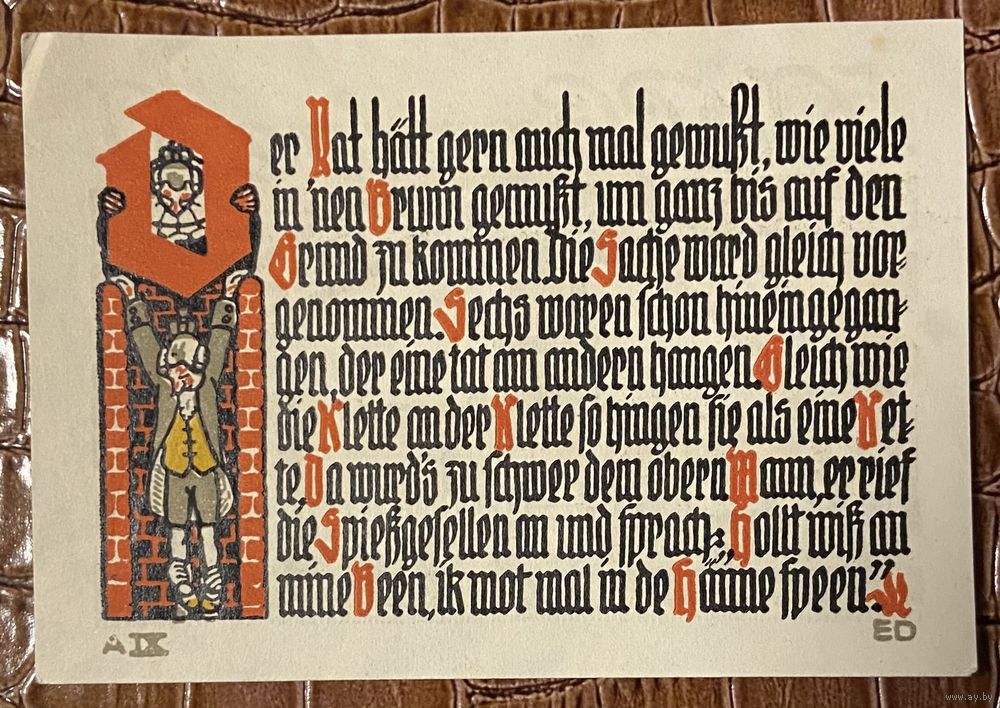 Der Rat hätt gern auch mal gewußt, wie viele
in 'nen Brunn gemußt, um ganz bis auf den
Grund zu kommen. Die Sache ward gleich vor-
genommen. Sechs waren schon hineingegan-
gen, der eine tat am andern hangen. Gleich wie
die Klette an der Klette so hingen sie als eine Ket-
te. Da wurd's zu schwer dem obern Mann, er rief
die Spießgesellen an und sprach: „Hollt wiß an
mine Been, ik mot mal in de Hänne speen."
A IX
ED
www.ay.by